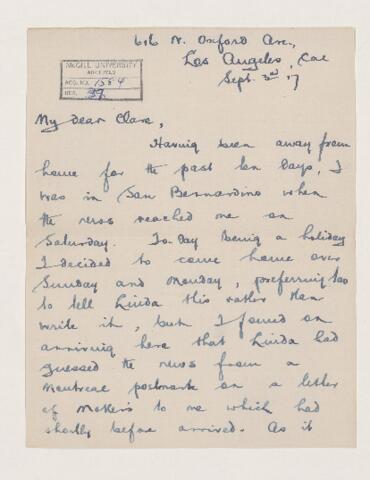 616 N. Oxford Ave.,
Los Angeles, Cal
Sept. 3rd 17
McGILL UNIVERSITY
ARCHIVES
ACC. NO. 1554
REF. 39
My dear Clare,
Having been away from
home for the past ten days, I
was in San Bernardino when
the news reached me on
Saturday. To-day being a holiday
I decided to come home over
Sunday and Monday, preferring too
to tell Linda this rather than
write it, but I found on
arriving here that Linda had
guessed the news from a
Montreal postmark on a letter
of Mother's to me which had
shortly before arrived. As it